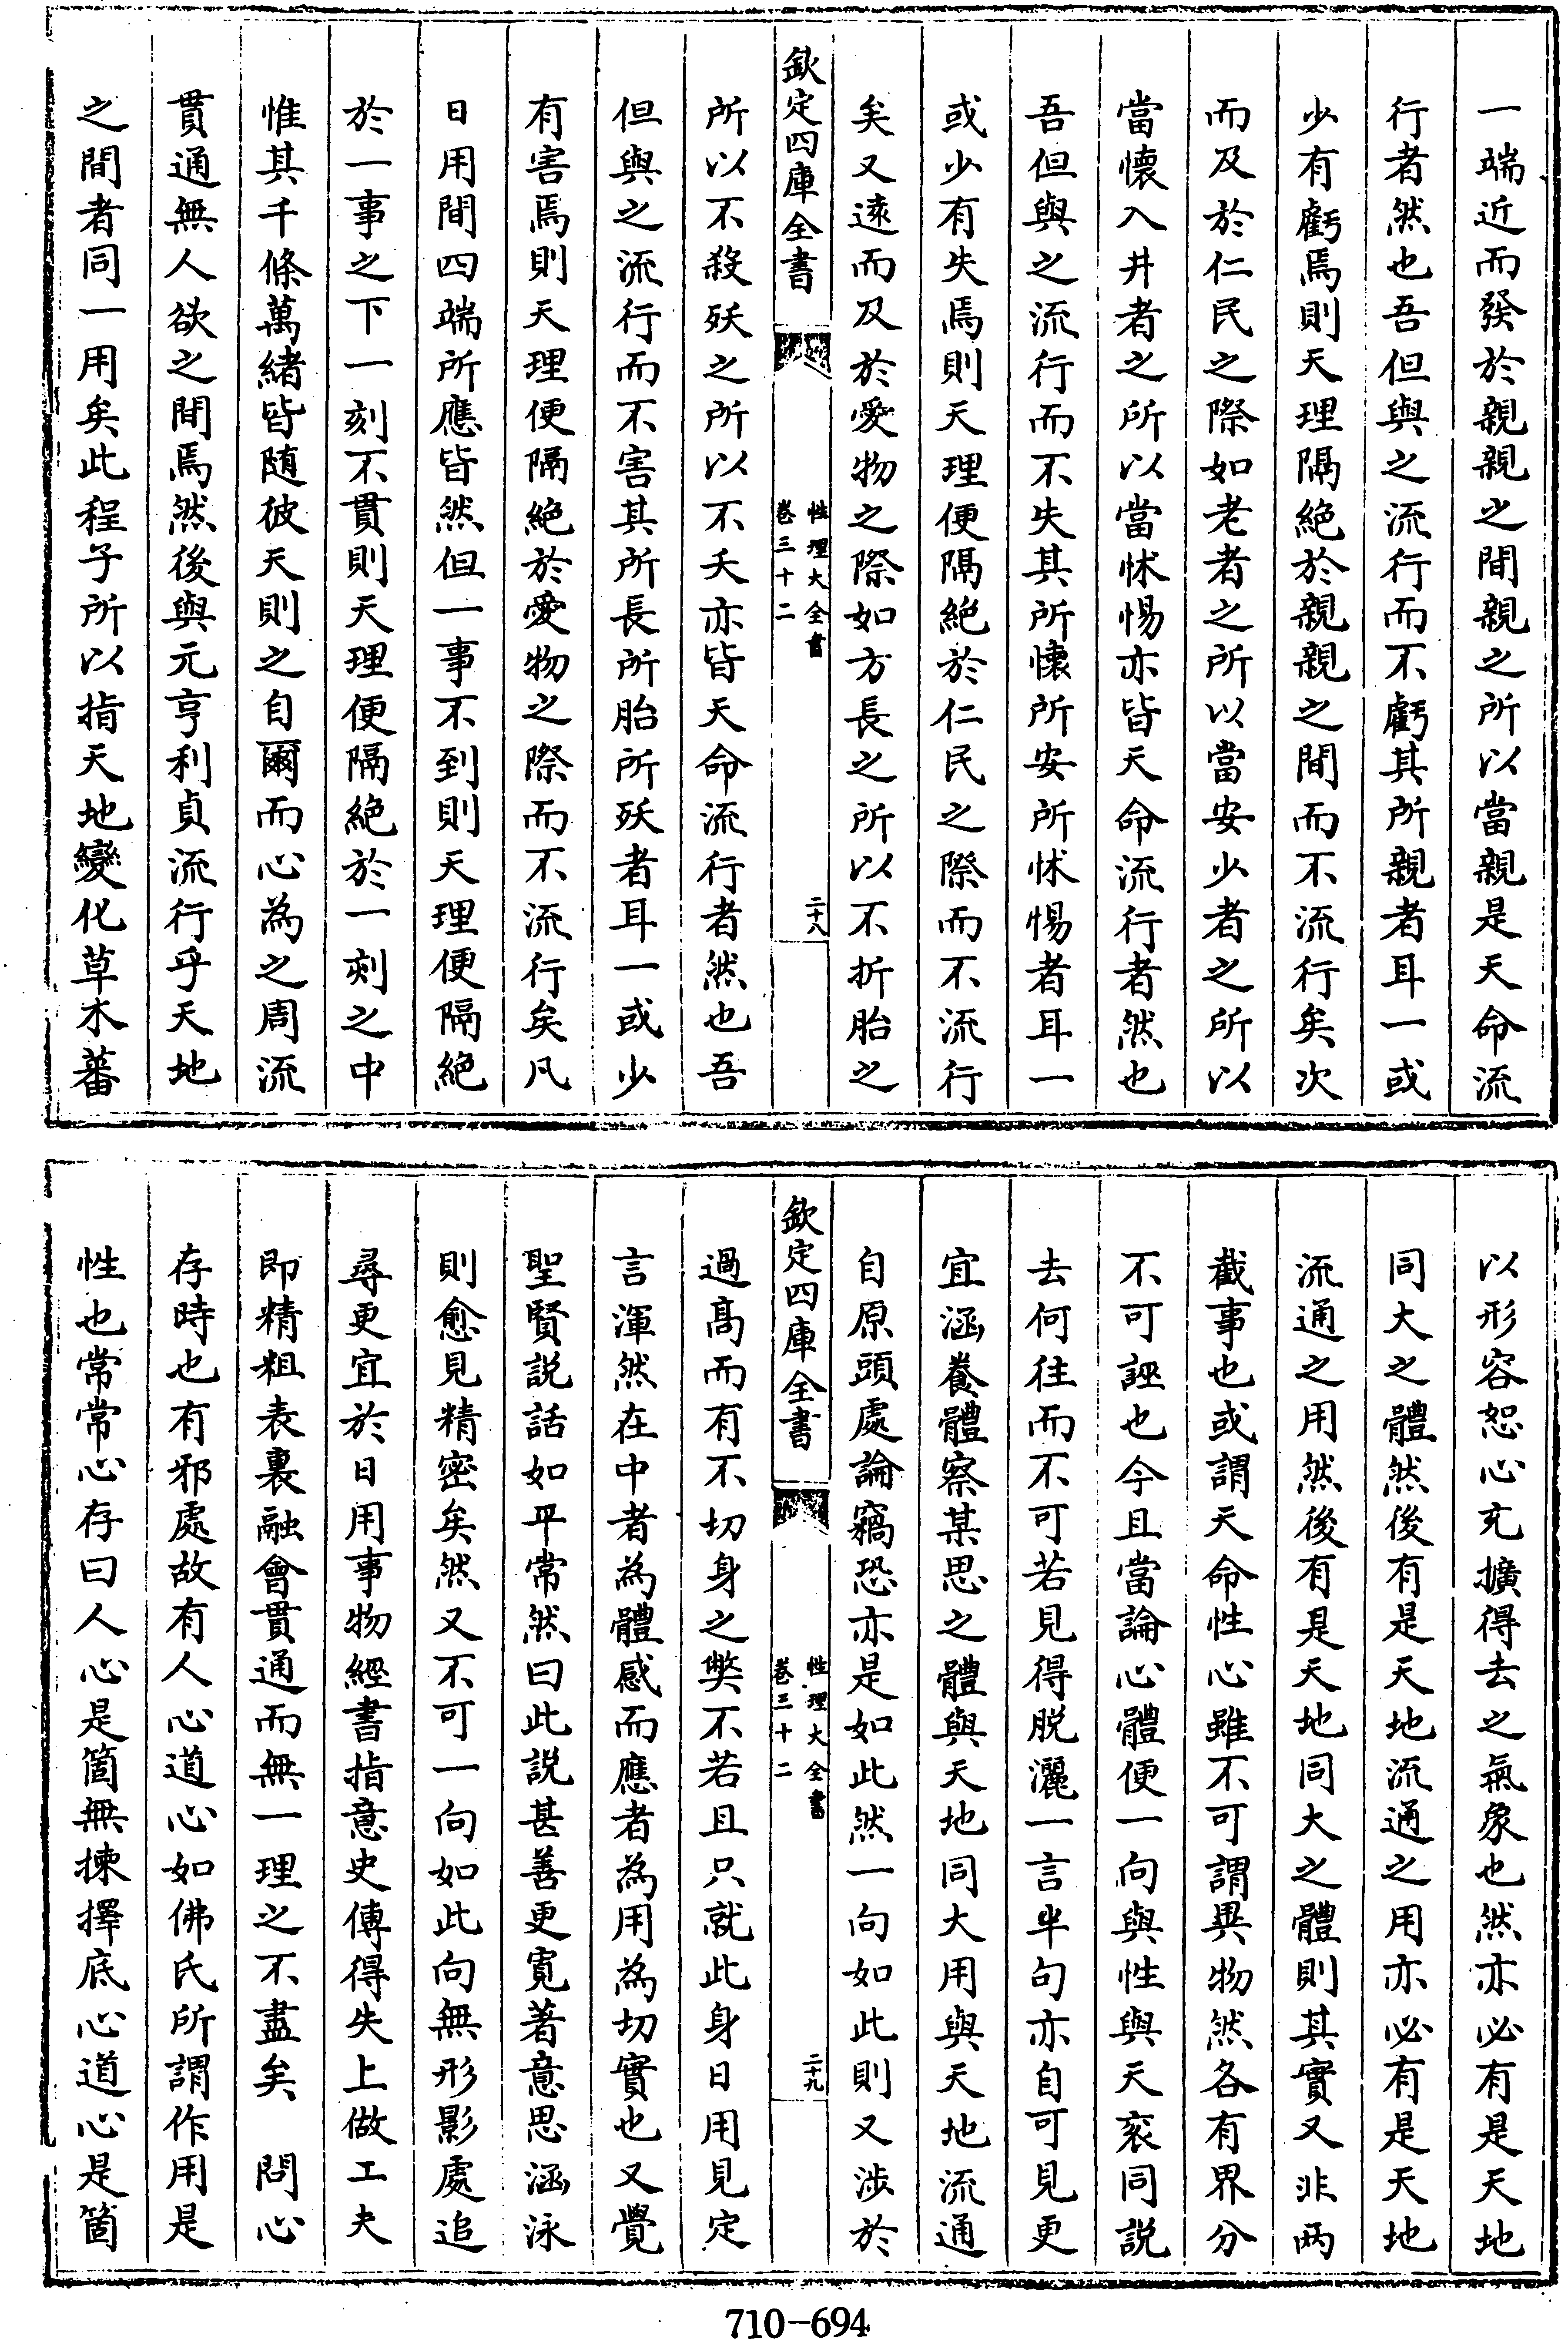 一端近而發於親親之間親之所以當親是天命流
行者然也吾但與之流行而不虧其所親者耳一或
少有虧焉則天理隔絶於親親之間而不流行矣次
而及於仁民之際如老者之所以當安少者之所以
當懷入井者之所以當怵惕亦皆天命流行者然也
吾但與之流行而不失其所懷所安所怵惕者耳一
或少有失焉則天理便隔絶於仁民之際而不流行
矣又逺而及於愛物之際如方長之所以不折胎之
欽定四庫全書
性理大全書
卷三十二
二十八
所以不殺殀之所以不夭亦皆天命流行者然也吾
但與之流行而不害其所長所胎所殀者耳一或少
有害焉則天理便隔絶於愛物之際而不流行矣凡
日用間四端所應皆然但一事不到則天理便隔絶
於一事之下一刻不貫則天理便隔絶於一刻之中
惟其千條萬緒皆随彼天則之自爾而心為之周流
貫通無人欲之間焉然後與元亨利貞流行乎天地
之間者同一用矣此程子所以指天地變化草木蕃
以形容恕心充擴得去之氣象也然亦必有是天地
同大之體然後有是天地流通之用亦必有是天地
流通之用然後有是天地同大之體則其實又非两
截事也或謂天命性心雖不可謂異物然各有界分
不可誣也今且當論心體便一向與性與天衮同説
去何往而不可若見得脱灑一言半句亦自可見更
宜涵養體察某思之體與天地同大用與天地流通
自原頭處論竊恐亦是如此然一向如此則又涉於
欽定四庫全書
性理大全書
卷三十二
二十九
過髙而有不切身之弊不若且只就此身日用見定
言渾然在中者為體感而應者為用為切實也又覺
聖賢説話如平常然曰此説甚善更寛著意思涵泳
則愈見精密矣然又不可一向如此向無形影處追
尋更宜於日用事物經書指意史傳得失上做工夫
即精粗表裏融會貫通而無一理之不盡矣　問心
存時也有邪處故有人心道心如佛氏所謂作用是
性也常常心存曰人心是箇無揀擇底心道心是箇
710-694